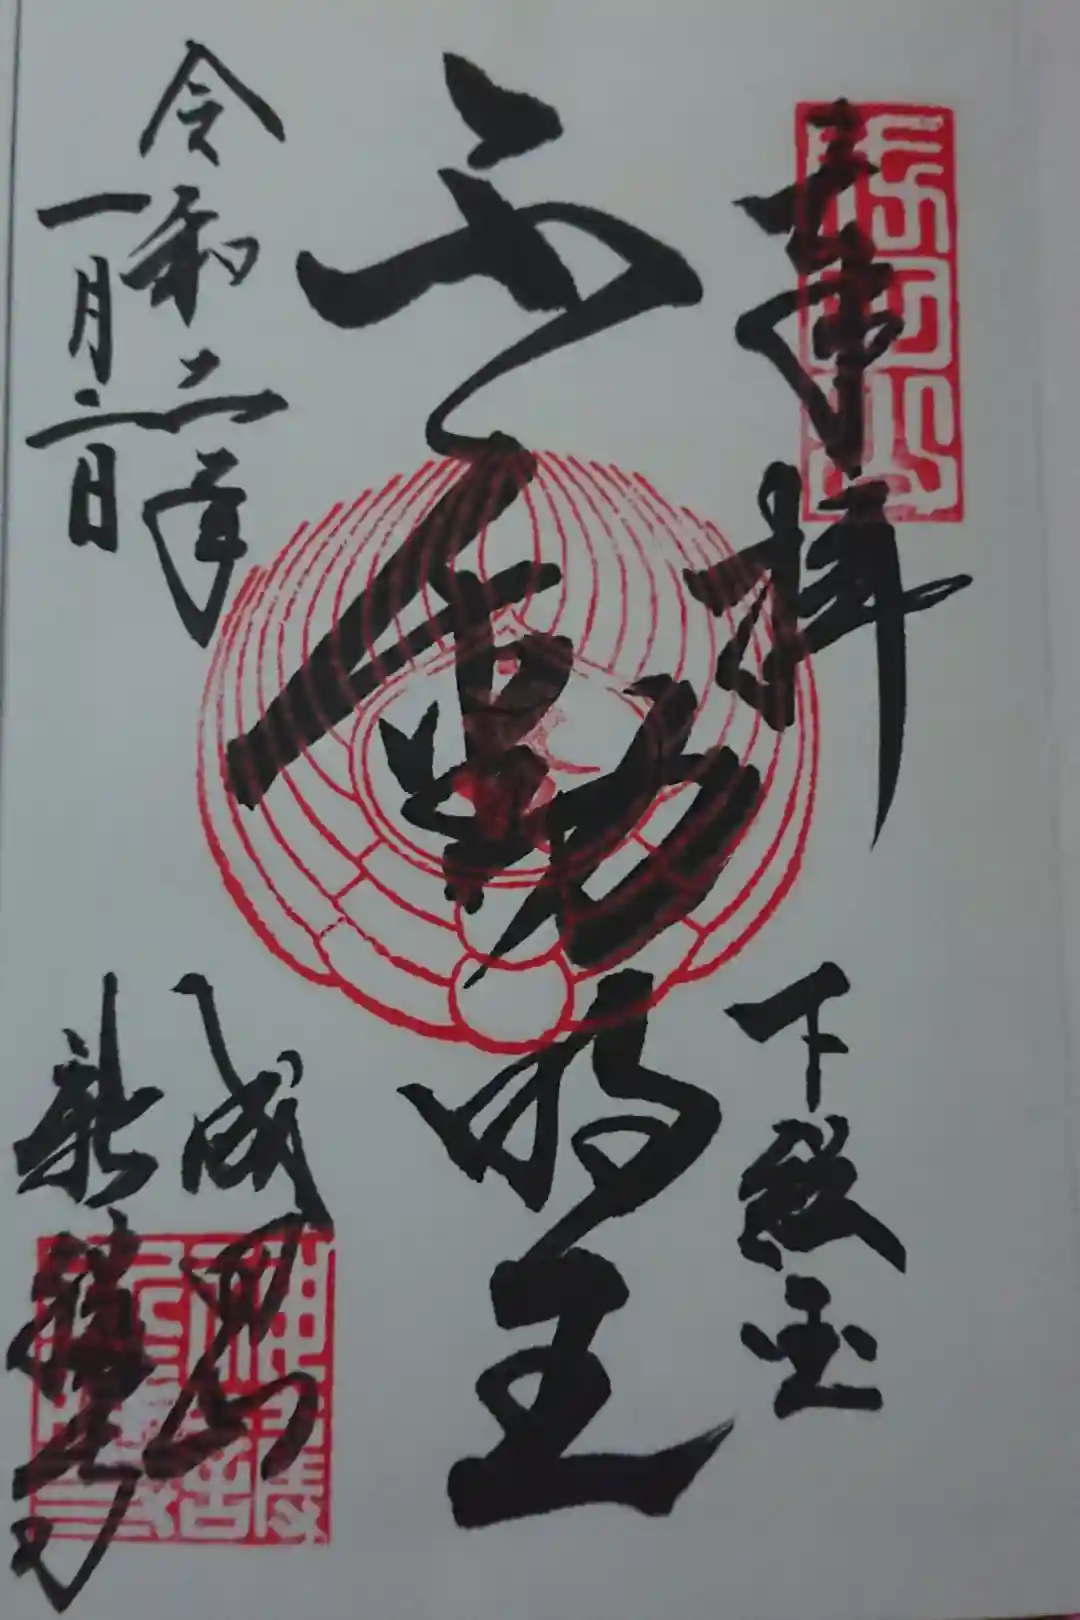 奉拝
下総国
不動明王
令和二年
一月二日
成田山
新勝寺
成田山